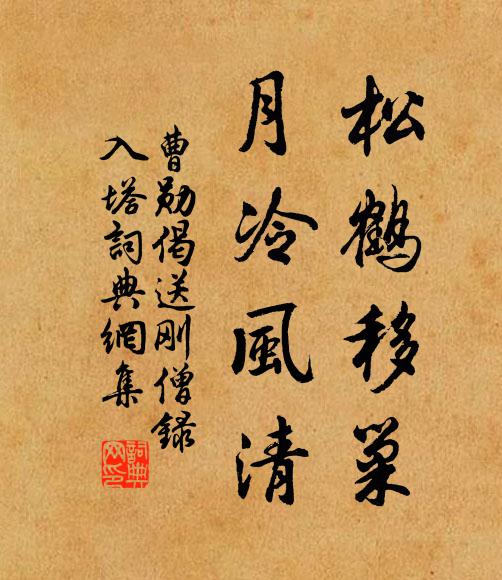 松鶴移巢
月冷風清
曹勛偈送剛僧錄
入塔詞典網集
詞典网印